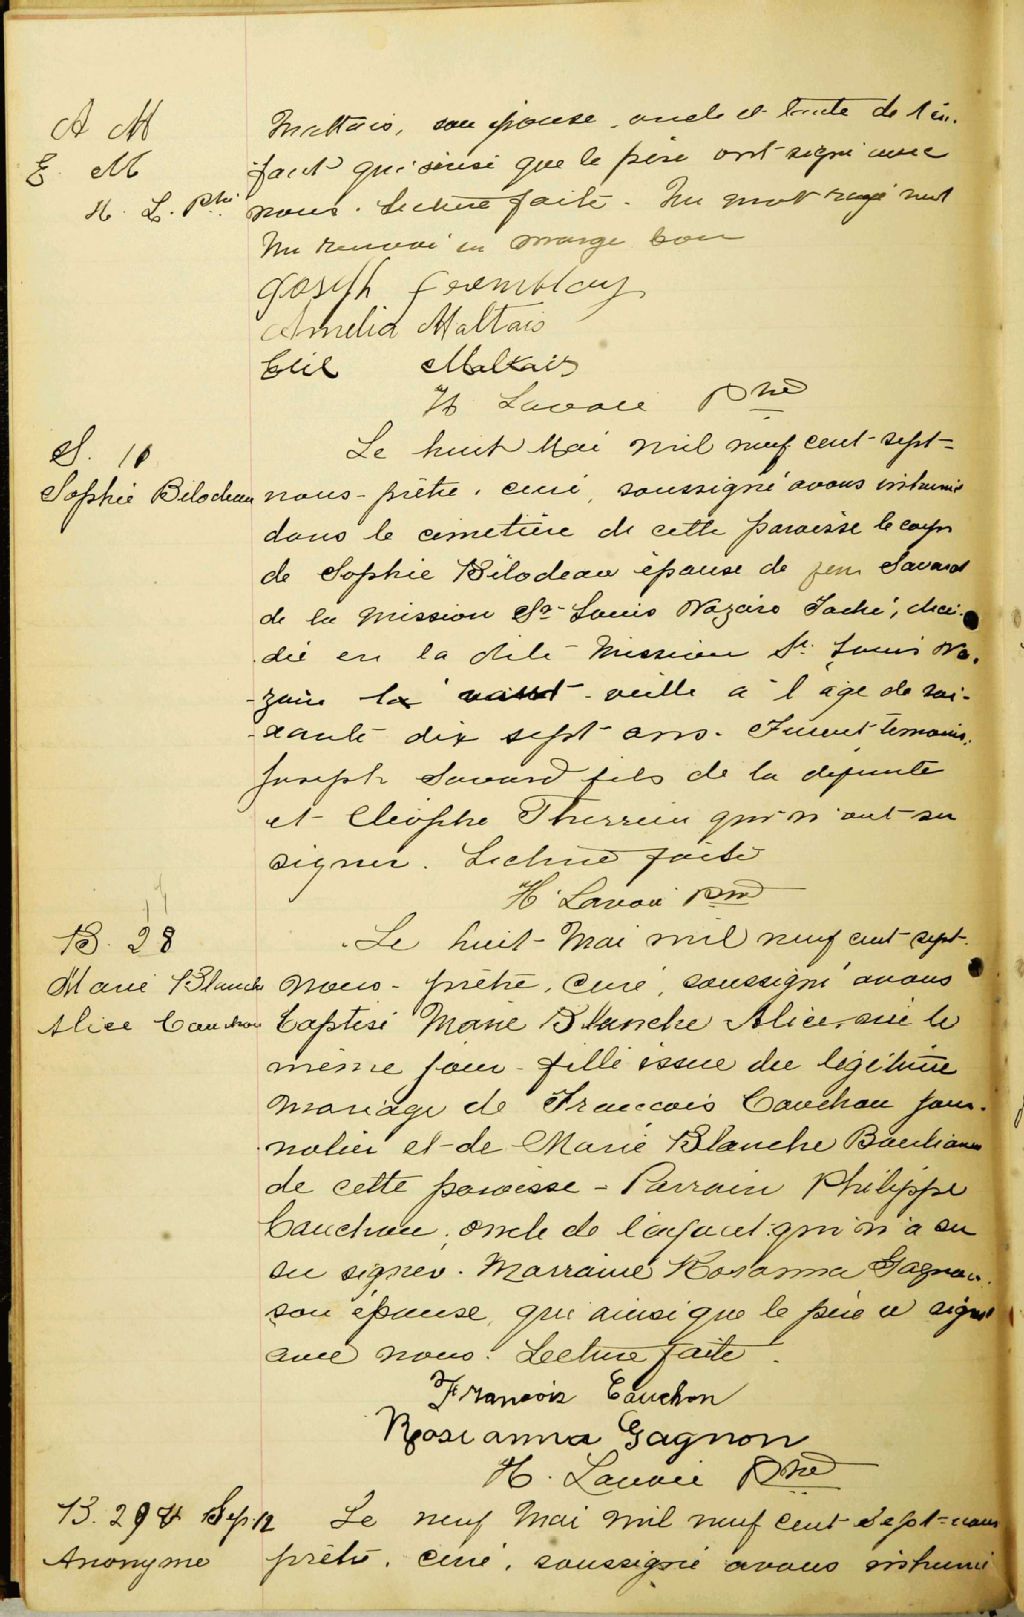 A M
E. M
H. L. Ptre
Maltais, son épouse, oncle et tante de l'en-
fant qui ainsi que le père ont signé avec
nous. Lecture faite. Un mot rayé nul
Un renvoi en marge bon
Joseph Tremblay
Amelia Maltais
Maltais
H Lavoie Ptre
S. 11
Sophie Bilodeau
Le huit Mai mil neuf cent sept-
nous prêtre, curé, soussigné avons inhumé
dans le cimetière de cette paroisse le corps
de Sophie Bilodeau épouse de feu Savard
de la Mission St Louis Nazaire Taché, décé-
dée en la dite Mission St Louis Na-
-zaire la veille à l'âge de soi-
-xante dix sept ans. Furent témoins,
Joseph Savard fils de la défunte
et Cléophe Therrien qui n'ont su
signer. Lecture faite
H Lavoie Ptre
B. 28
Marie Blanche
Alice Cauchon
Le huit Mai mil neuf cent sept-
nous prêtre, curé, soussigné avons
baptisé Marie Blanche Alice, née le
même jour fille issue du légitime
mariage de Francois Cauchon jour-
nalier et de Marie Blanche Boulianne
de cette paroisse - Parrain Philippe
Cauchon, oncle de l'enfant qui n'a su
su signer. Marraine Rosanna Gagnon
son épouse, qui ainsi que le père a signé
avec nous. Lecture faite.
Francois Cauchon
Roseanna Gagnon
H. Lavoie Ptre
B. 29 & Sep. 12
Anonyme
Le neuf Mai mil neuf cent sept-nous
prêtre, curé, soussigné avons inhumé